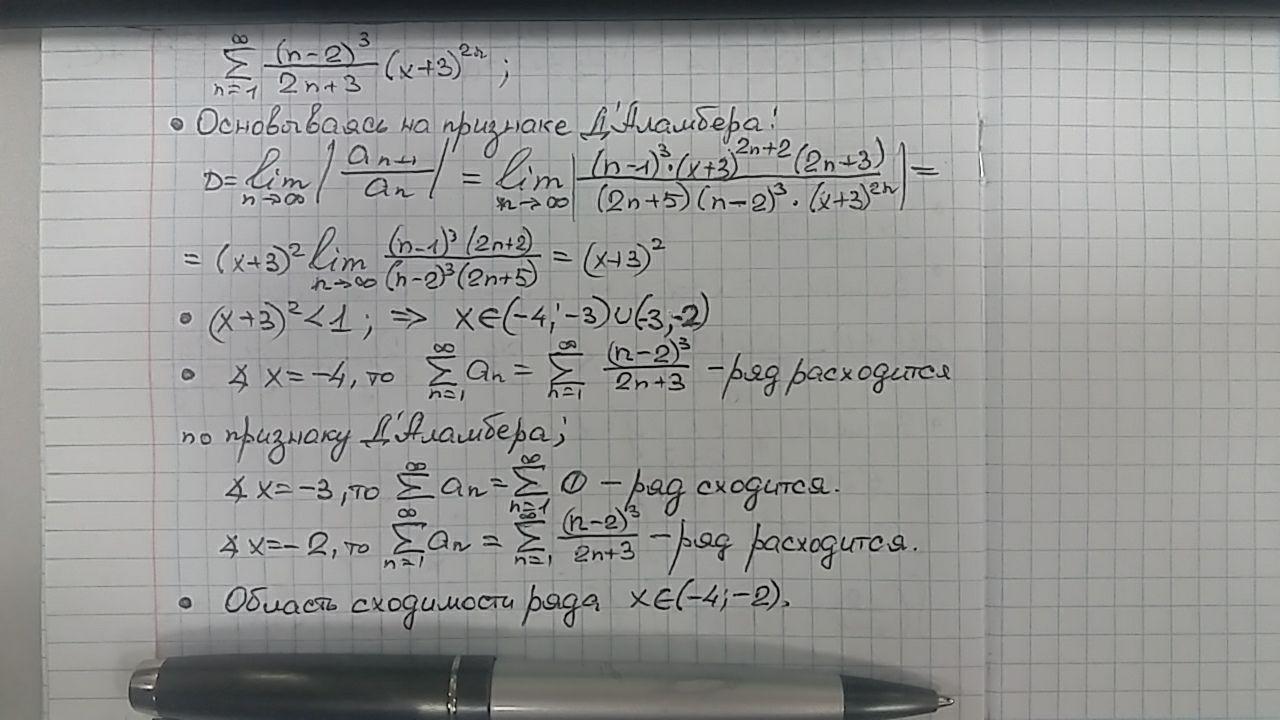 ∞ ∑ n=1 (n-2)³ / 2n+3 (x+3)²ⁿ ;
• Основываясь на признаке Д'Аламбера:
D = lim n→∞ | aₙ₊₁ / aₙ | = lim n→∞ | (n-1)³·(x+3)²ⁿ⁺²(2n+3) / (2n+5)(n-2)³·(x+3)²ⁿ | =
= (x+3)² lim n→∞ (n-1)³(2n+2) / (n-2)³(2n+5) = (x+3)²
• (x+3)² < 1 ; ⇒ x∈(-4;-3)∪(-3;-2)
• ∡ x=-4, то ∞ ∑ n=1 aₙ = ∞ ∑ n=1 (n-2)³ / 2n+3 - ряд расходится
по признаку Д'Аламбера;
∡ x=-3, то ∞ ∑ n=1 aₙ = ∞ ∑ n=1 0 - ряд сходится.
∡ x=-2, то ∞ ∑ n=1 aₙ = ∞ ∑ n=1 (n-2)³ / 2n+3 - ряд расходится.
• Область сходимости ряда x∈(-4;-2).